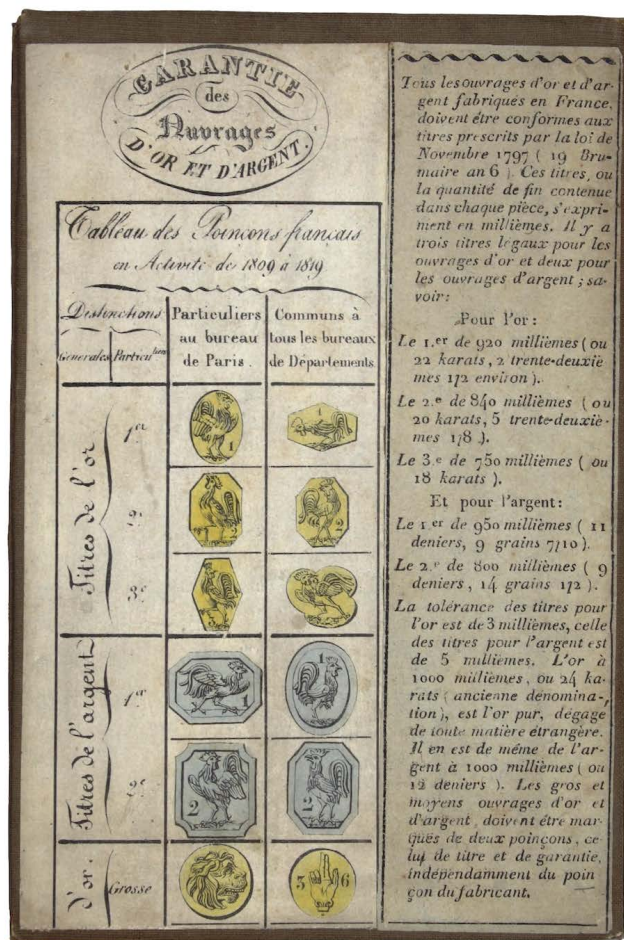 GARANTIE
des
Ouvrages
D'OR ET D'ARGENT.
Tableau des Poinçons français
en Activité de 1809 à 1819
Distinctions
Générales
Particulières
Particuliers
au bureau
de Paris.
Communs à
tous les bureaux
de Départements
Titres de l'or
1er
1
1
2e
1 2
2
3e
3
Titres de l'argent
1er
1
1
2e
2
2
d'or.
Grosse
3 6
Tous les ouvrages d'or et d'ar-
gent fabriqués en France,
doivent être conformes aux
titres prescrits par la loi de
Novembre 1797 ( 19 Bru-
maire an 6 ). Ces titres, ou
la quantité de fin contenue
dans chaque pièce, s'expri-
ment en millièmes. Il y a
trois titres légaux pour les
ouvrages d'or et deux pour
les ouvrages d'argent ; sa-
voir :
Pour l'or :
Le 1.er de 920 millièmes ( ou
22 karats, 2 trente-deuxiè
mes 1/2 environ ).
Le 2.e de 840 millièmes ( ou
20 karats, 5 trente-deuxiè-
mes 1/8 ).
Le 3.e de 750 millièmes ( ou
18 karats ).
Et pour l'argent :
Le 1.er de 950 millièmes ( 11
deniers, 9 grains 7/10 ).
Le 2.e de 800 millièmes ( 9
deniers, 14 grains 1/2 ).
La tolérance des titres pour
l'or est de 3 millièmes, celle
des titres pour l'argent est
de 5 millièmes. L'or à
1000 millièmes, ou 24 ka-
rats ( ancienne dénomina-
tion ), est l'or pur, dégagé
de toute matière étrangère.
Il en est de même de l'ar-
gent à 1000 millièmes ( ou
12 deniers ). Les gros et
moyens ouvrages d'or et
d'argent, doivent être mar-
qués de deux poinçons, ce
lui de titre et de garantie,
indépendamment du poin
çon du fabricant.